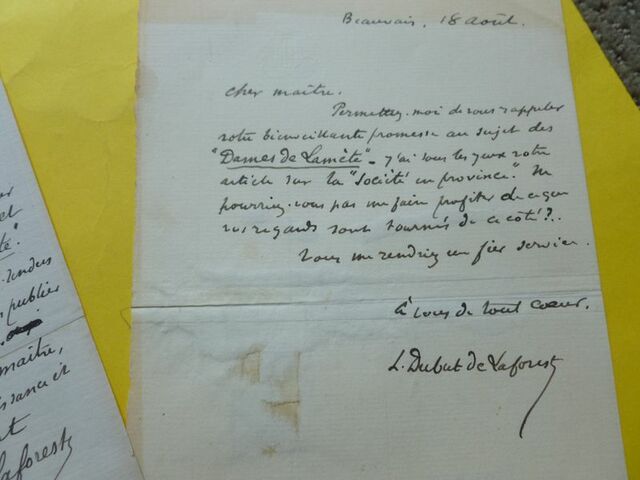 Beauvais, 18 août.
Cher maître,
Permettez-moi de vous rappeler
votre bienveillante promesse au sujet des
"Dames de Lamète" - j'ai sous les yeux votre
article sur la "Société en province." Ne
pourriez-vous pas me faire profiter de ce que
vos regards sont tournés de ce côté ?..
Vous me rendriez un fier service.
à vous de tout coeur.
L. Dubut de Laforest
publier
maître,
Laforest